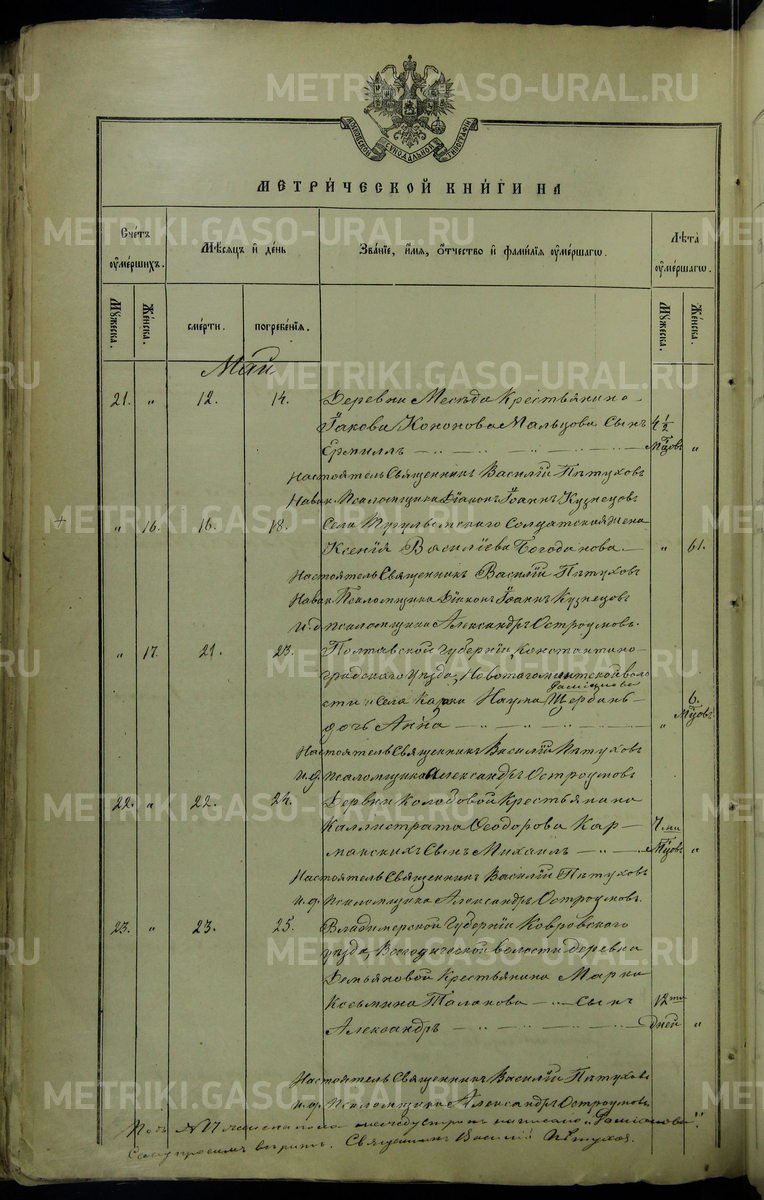 МОСКОВСКОЙ СѴНОДАЛЬНОЙ ТИПОГРАФІИ
МЕТРИ́ЧЕСКОЙ КНИ́ГИ НА
Сче́тъ оу҆ме́ршихъ.
Мѣ́сяцъ и҆ де́нь
Зва́нїе, и҆́мя, ѻ҆́тчество и҆ фами́лїя оу҆ме́ршагѡ.
Лѣ́та оу҆ме́ршагѡ.
Мꙋ́жеска.
Же́нска.
сме́рти.
погребе́нїя.
Мꙋ́жеска.
Же́нска.
Май
21. " 12. 14. Деревни Меседа Крестьянина
Іакова Кононова Мальцова Сынъ 4 ½
Ермиллъ — мѣцовъ "
Настоятель Священникъ Василій Пѣтуховъ
На вак. Псаломщика Діаконъ Іоаннъ Кузнецовъ
+ " 16. 16. 18. Села Солдатская жена
Ксенія Василіева Богоданова — " 61.
Настоятель Священникъ Василій Пѣтуховъ
На вак. Псаломщика Діаконъ Іоаннъ Кузнецовъ
и. д. псаломщика Александръ Остроумовъ.
" 17. 21. 23. Полтавской Губерніи, Константино-
градскаго Уѣзда, воло
сти и села Наума Щербань-
6.
дочь Анна — " мѣцовъ
Настоятель Священникъ Василій Пѣтуховъ
и. д. псаломщика Александръ Остроумовъ
22. " 22. 24. Дервни Колобовой Крестьянина
Каллистрата Ѳеодорова Кар- 7ми
манскихъ Сынъ Михаилъ — мѣцовъ "
Настоятель Священникъ Василій Пѣтуховъ
и. д. Псаломщика Александръ Остроумовъ.
23. " 23. 25. Владимерской Губерніи Ковровскаго
уѣзда, волости деревни
Демьяновой Крестьянина Марка
Косьмина Талакова — Сынъ 12ти
Александръ — дней "
Настоятель Священникъ Василій Пѣтуховъ
и. д. Псаломщика Александръ Остроумовъ
написано
Священникъ Василій Пѣтуховъ.
METRIKI.GASO-URAL.RU